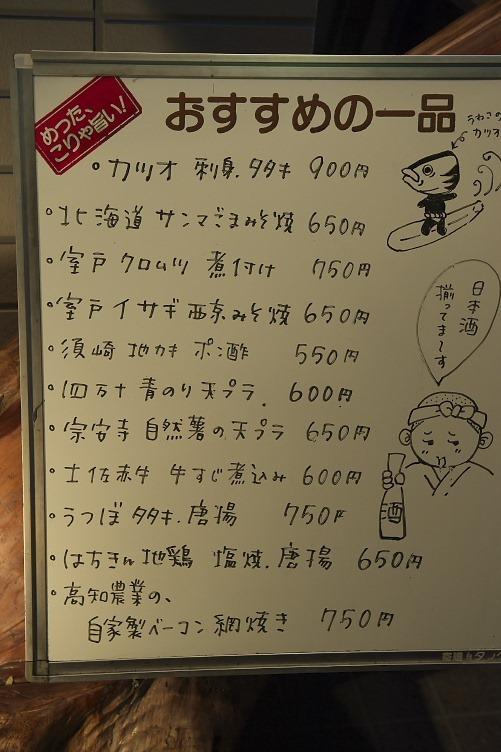 めった、
こりゃ旨い!
おすすめの一品
カツオ
・カツオ 刺身.タタキ 900円
・北海道 サンマごまみそ焼 650円
・室戸 クロムツ 煮付け 750円
・室戸イサギ西京みそ焼 650円
・須崎 地カキ ポン酢 550円
・四万十 青のり天プラ. 600円
・宗安寺 自然薯の天プラ 650円
・土佐赤牛 牛すじ煮込み 600円
・うつぼタタキ.唐揚 750円
・はちきん地鶏 塩焼.唐揚 650円
・高知農業の、
自家製ベーコン網焼き 750円
日本酒
揃ってま〜す
酒